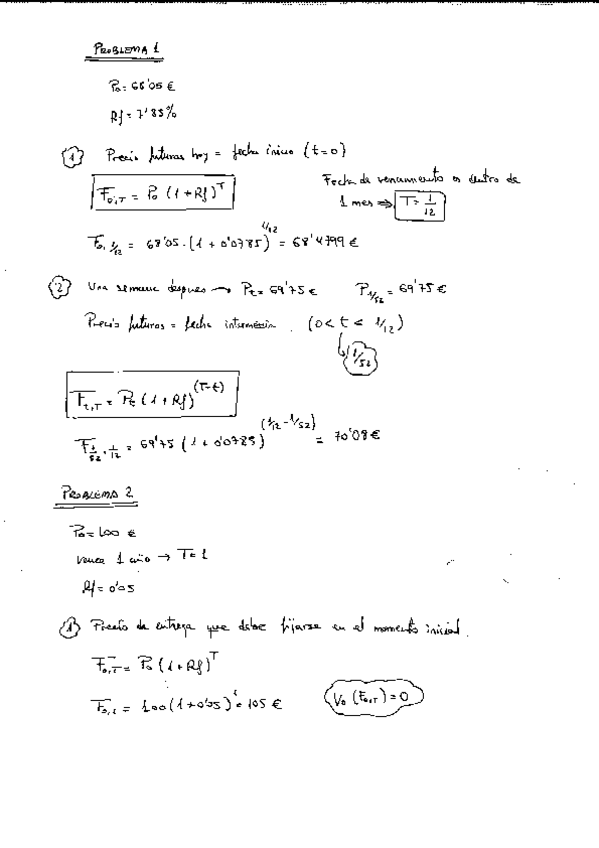 PROBLEMA 1
P₀ = 68'05 €
Rf = 7'85%
① Precio futuros hoy = fecha inicio (t=0)
Fecha de vencimiento es dentro de
1 mes ⇒ T = 1/12
F₀,T = P₀ (1+Rf)^T
F₀,1/12 = 68'05 · (1 + 0'0785)^1/12 = 68'4799 €
② Una semana después → Pt = 69'75 € P1/52 = 69'75 €
Precio futuros = fecha intermedia. (0 < t < 1/12)
1/52
Ft,T = Pt (1 + Rf)^(T-t)
F1/52,1/12 = 69'75 (1 + 0'0785)^(1/12 - 1/52) = 70'08 €
PROBLEMA 2
P₀ = 100 €
vence 1 año → T = 1
Rf = 0'05
① Precio de entrega que debe fijarse en el momento inicial.
F₀,T = P₀ (1+Rf)^T
F₀,1 = 100 (1+0'05)^1 = 105 €
V₀ (F₀,T) = 0